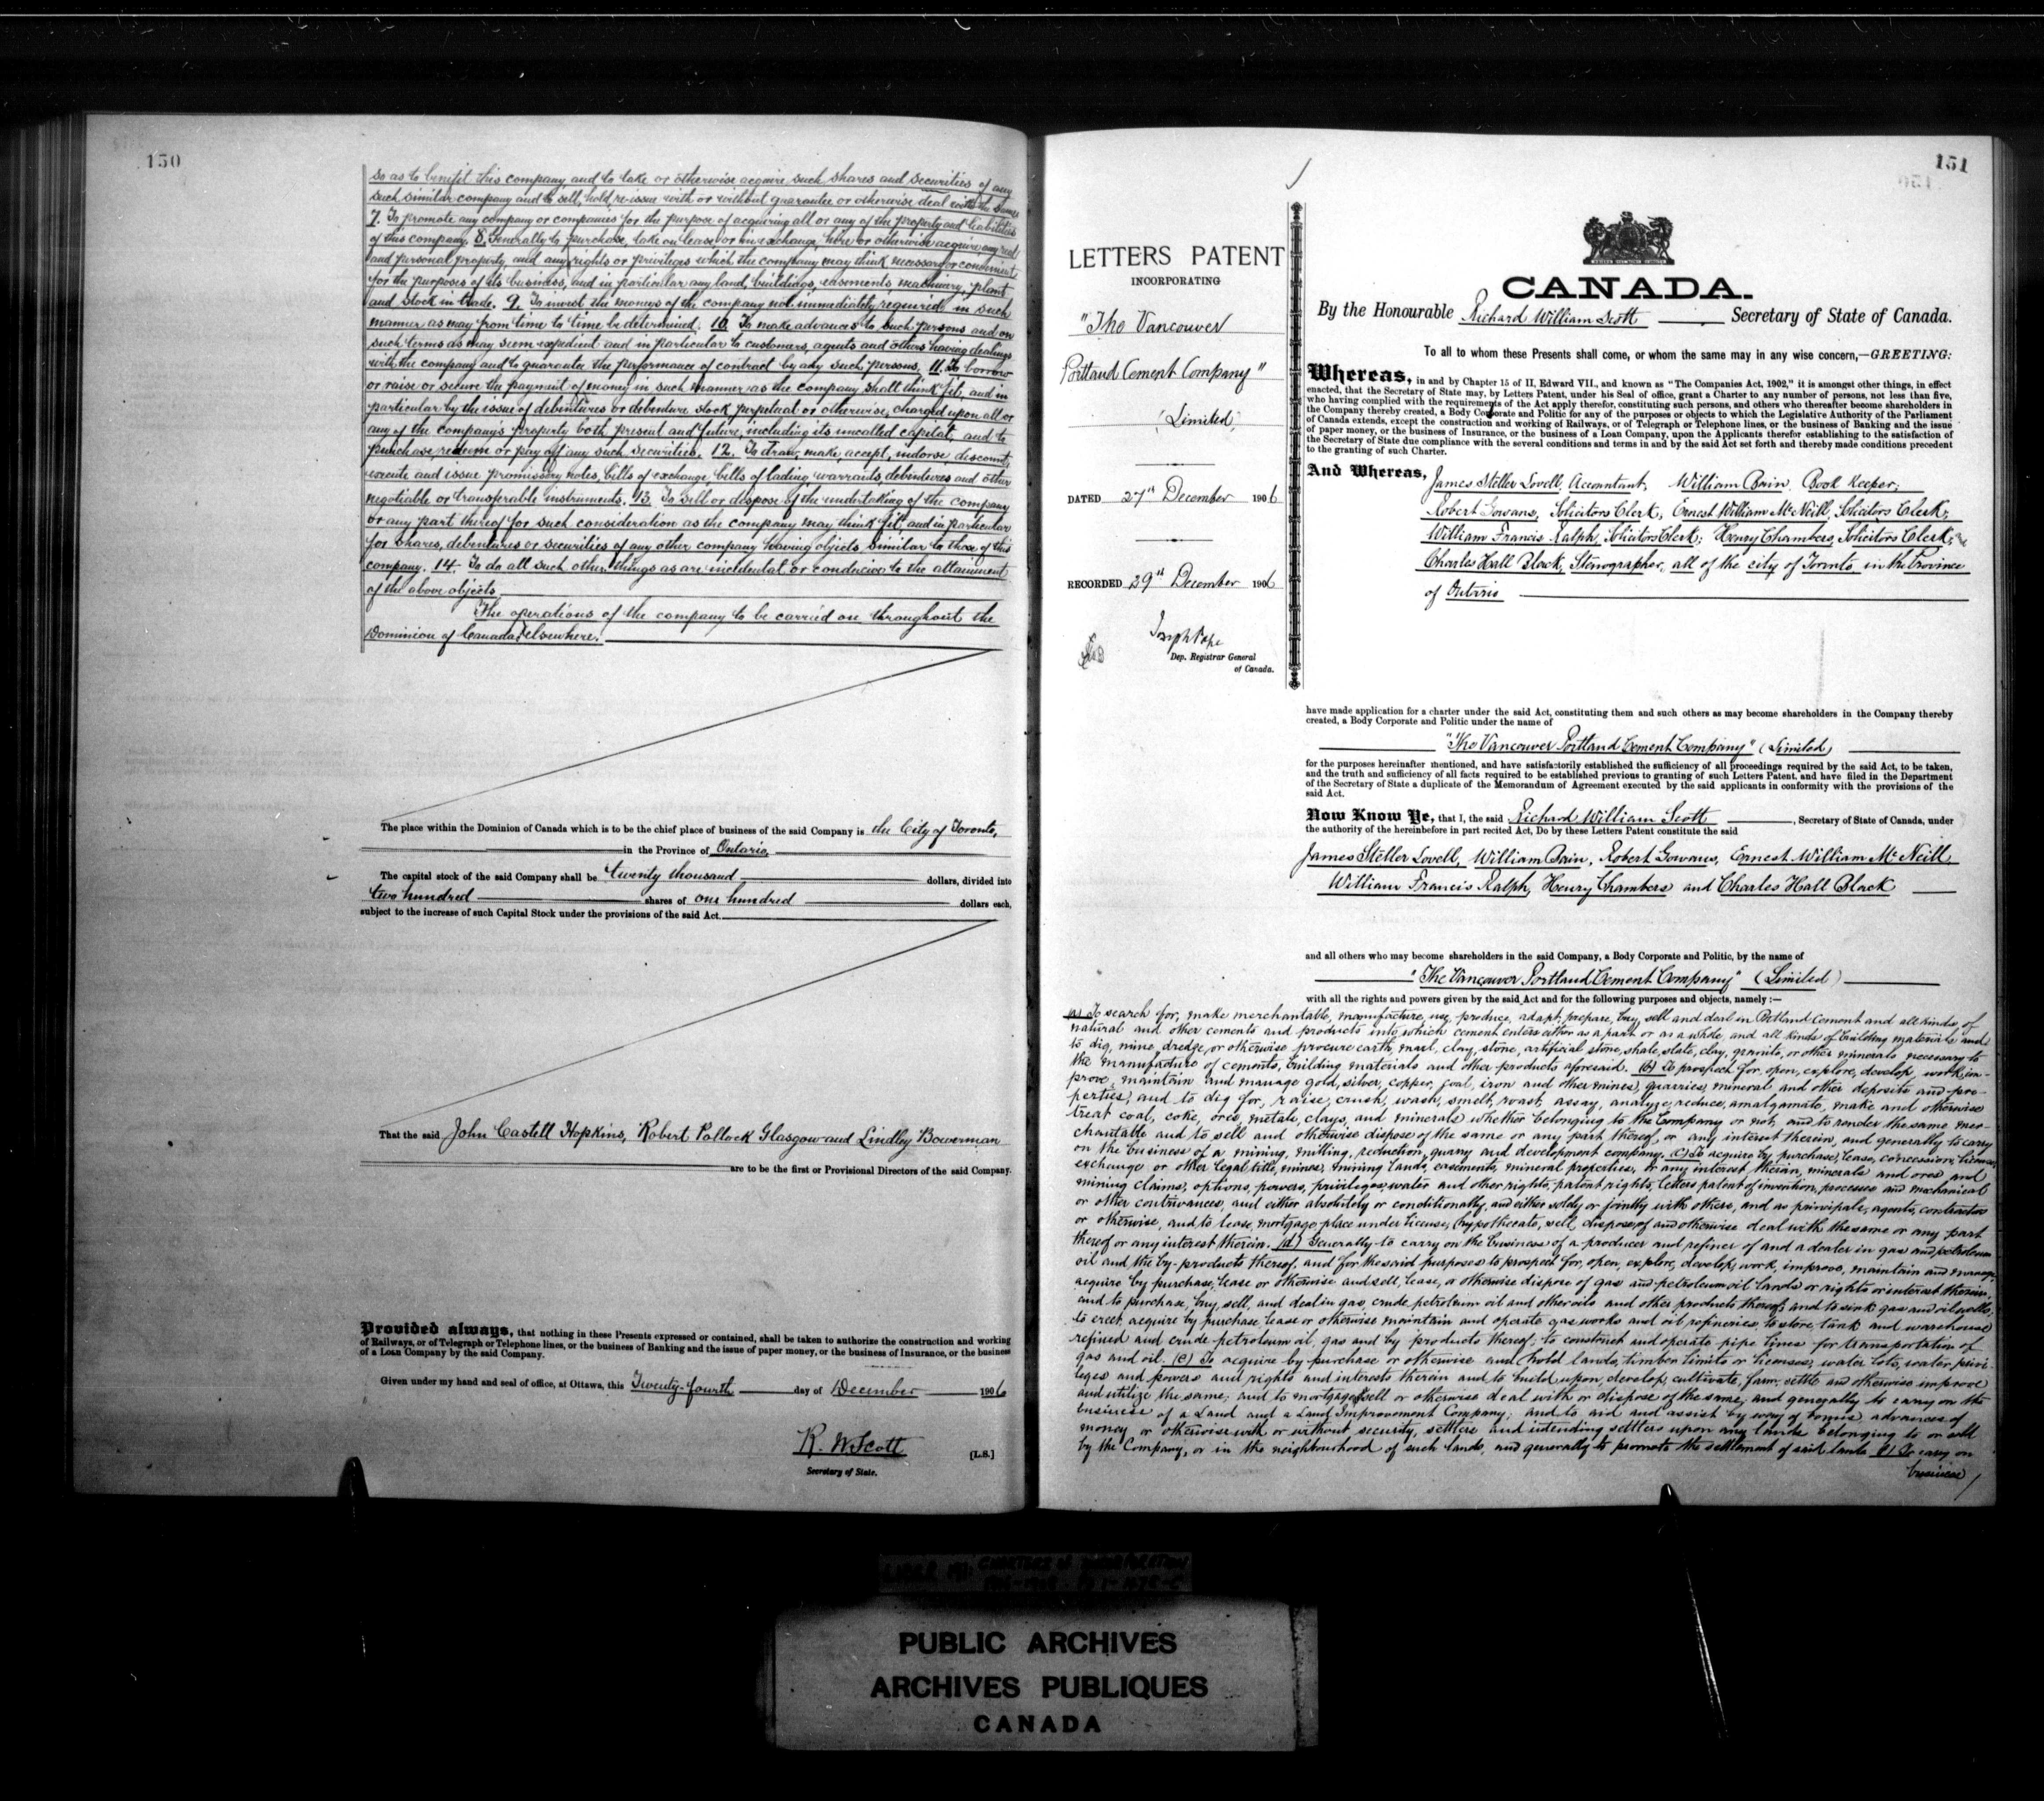 150
so as to benefit this company and to take or otherwise acquire such shares and securities of any
such similar company and to sell, hold, re-issue with or without guarantee or otherwise deal with the same
7. To promote any company or companies for the purpose of acquiring all or any of the property and liabilities
of this company. 8. Generally to purchase, take on lease or in exchange, hire or otherwise acquire any real
and personal property and any rights or privileges which the company may think necessary or convenient
for the purposes of its business, and in particular any land, buildings, easements, machinery, plant
and stock in trade. 9. To invest the moneys of the company not immediately required in such
manner as may from time to time be determined. 10. To make advances to such persons and on
such terms as may seem expedient and in particular to customers, agents and others having dealings
with the company and to guarantee the performance of contract by any such persons. 11. To borrow
or raise or secure the payment of money in such manner as the company shall think fit, and in
particular by the issue of debentures or debenture stock perpetual or otherwise, charged upon all or
any of the company's property both present and future, including its uncalled capital, and to
purchase, redeem or pay off any such securities. 12. To draw, make, accept, indorse, discount,
execute and issue promissory notes, bills of exchange, bills of lading warrants, debentures and other
negotiable or transferable instruments. 13. To sell or dispose of the undertaking of the company
or any part thereof for such consideration as the company may think fit, and in particular
for shares, debentures or securities of any other company having objects similar to those of this
company. 14. To do all such other things as are incidental or conducive to the attainment
of the above objects
The operations of the company to be carried on throughout the
Dominion of Canada & elsewhere.
The place within the Dominion of Canada which is to be the chief place of business of the said Company is the City of Toronto,
in the Province of Ontario,
The capital stock of the said Company shall be twenty thousand dollars, divided into
two hundred shares of one hundred dollars each,
subject to the increase of such Capital Stock under the provisions of the said Act.
That the said John Castell Hopkins, Robert Pollock Glasgow and Lindley Bowerman
are to be the first or Provisional Directors of the said Company.
Provided always, that nothing in these Presents expressed or contained, shall be taken to authorize the construction and working
of Railways, or of Telegraph or Telephone lines, or the business of Banking and the issue of paper money, or the business of Insurance, or the business
of a Loan Company by the said Company.
Given under my hand and seal of office, at Ottawa, this Twenty-fourth day of December 1906
R. W. Scott
[L.S.]
Secretary of State.
151
LETTERS PATENT
INCORPORATING
"The Vancouver
Portland Cement Company"
(Limited)
DATED 27th December 1906
RECORDED 29th December 1906
Joseph Pope
Dep. Registrar General
of Canada.
CANADA.
By the Honourable Richard William Scott Secretary of State of Canada.
To all to whom these Presents shall come, or whom the same may in any wise concern,—GREETING:
Whereas, in and by Chapter 15 of II, Edward VII., and known as "The Companies Act, 1902," it is amongst other things, in effect
enacted, that the Secretary of State may, by Letters Patent, under his Seal of office, grant a Charter to any number of persons, not less than five,
who having complied with the requirements of the Act apply therefor, constituting such persons, and others who thereafter become shareholders in
the Company thereby created, a Body Corporate and Politic for any of the purposes or objects to which the Legislative Authority of the Parliament
of Canada extends, except the construction and working of Railways, or of Telegraph or Telephone lines, or the business of Banking and the issue
of paper money, or the business of Insurance, or the business of a Loan Company, upon the Applicants therefor establishing to the satisfaction of
the Secretary of State due compliance with the several conditions and terms in and by the said Act set forth and thereby made conditions precedent
to the granting of such Charter.
And Whereas, James Steller Lovell, Accountant, William Bain, Book Keeper;
Robert Gowans, Solicitors Clerk, Ernest William McNeill, Solicitors Clerk;
William Francis Ralph, Solicitors Clerk; Henry Chambers, Solicitors Clerk;
Charles Hall Black, Stenographer, all of the city of Toronto in the Province
of Ontario
have made application for a charter under the said Act, constituting them and such others as may become shareholders in the Company thereby
created, a Body Corporate and Politic under the name of
"The Vancouver Portland Cement Company" (Limited)
for the purposes hereinafter mentioned, and have satisfactorily established the sufficiency of all proceedings required by the said Act, to be taken,
and the truth and sufficiency of all facts required to be established previous to granting of such Letters Patent, and have filed in the Department
of the Secretary of State a duplicate of the Memorandum of Agreement executed by the said applicants in conformity with the provisions of the
said Act.
Now Know Ye, that I, the said Richard William Scott, Secretary of State of Canada, under
the authority of the hereinbefore in part recited Act, Do by these Letters Patent constitute the said
James Steller Lovell, William Bain, Robert Gowans, Ernest William McNeill,
William Francis Ralph, Henry Chambers and Charles Hall Black
and all others who may become shareholders in the said Company, a Body Corporate and Politic, by the name of
"The Vancouver Portland Cement Company" (Limited)
with all the rights and powers given by the said Act and for the following purposes and objects, namely :—
(a) To search for, make merchantable, manufacture, use, produce, adapt, prepare, buy, sell and deal in Portland Cement and all kinds of
natural and other cements and products into which cement enters either as a part or as a whole, and all kinds of building materials and
to dig, mine, dredge, or otherwise procure earth, marl, clay, stone, artificial stone, shale, slate, clay, granite, or other minerals necessary to
the manufacture of cements, building materials and other products aforesaid. (b) To prospect for, open, explore, develop, work, im-
prove, maintain and manage gold, silver, copper, coal, iron and other mines, quarries, mineral and other deposits and pro-
perties, and to dig for, raise, crush, wash, smelt, roast, assay, analyze, reduce, amalgamate, make and otherwise
treat coal, coke, ores, metals, clays, and minerals whether belonging to the Company or not, and to render the same mer-
chantable and to sell and otherwise dispose of the same or any part thereof, or any interest therein, and generally to carry
on the business of a mining, milling, reduction, quarry and development company. (c) To acquire by purchase, lease, concession, license,
exchange or other legal title, mines, mining lands, easements, mineral properties, or any interest therein, minerals and ores and
mining claims, options, powers, privileges, water and other rights, patent rights, letters patent of invention, processes and mechanical
or other contrivances, and either absolutely or conditionally, and either solely or jointly with others, and as principals, agents, contractors
or otherwise, and to lease, mortgage, place under license, hypothecate, sell, dispose of and otherwise deal with the same or any part
thereof or any interest therein. (d) Generally to carry on the business of a producer and refiner of and a dealer in gas and petroleum
oil and the by-products thereof, and for the said purposes to prospect for, open, explore, develop, work, improve, maintain and manage,
acquire by purchase, lease or otherwise and sell, lease, or otherwise dispose of gas and petroleum oil lands or rights or interest therein,
and to purchase, buy, sell, and deal in gas, crude petroleum oil and other oils and other products thereof; and to sink gas and oil wells,
to erect, acquire by purchase, lease or otherwise maintain and operate gas works and oil refineries, to store, tank and warehouse
refined and crude petroleum oil, gas and by products thereof; to construct and operate pipe lines for transportation of
gas and oil. (e) To acquire by purchase or otherwise and hold lands, timber limits or licenses, water lots, water privi-
leges and powers and rights and interests therein and to build upon, develop, cultivate, farm, settle and otherwise improve
and utilize the same; and to mortgage, sell or otherwise deal with or dispose of the same; and generally to carry on the
business of a Land and a Land Improvement Company; and to aid and assist by way of bonus, advances of
money or otherwise with or without security, settlers and intending settlers upon any lands belonging to or sold
by the Company, or in the neighbourhood of such lands, and generally to promote the settlement of said lands. (f) To carry on
business
PUBLIC ARCHIVES
ARCHIVES PUBLIQUES
CANADA